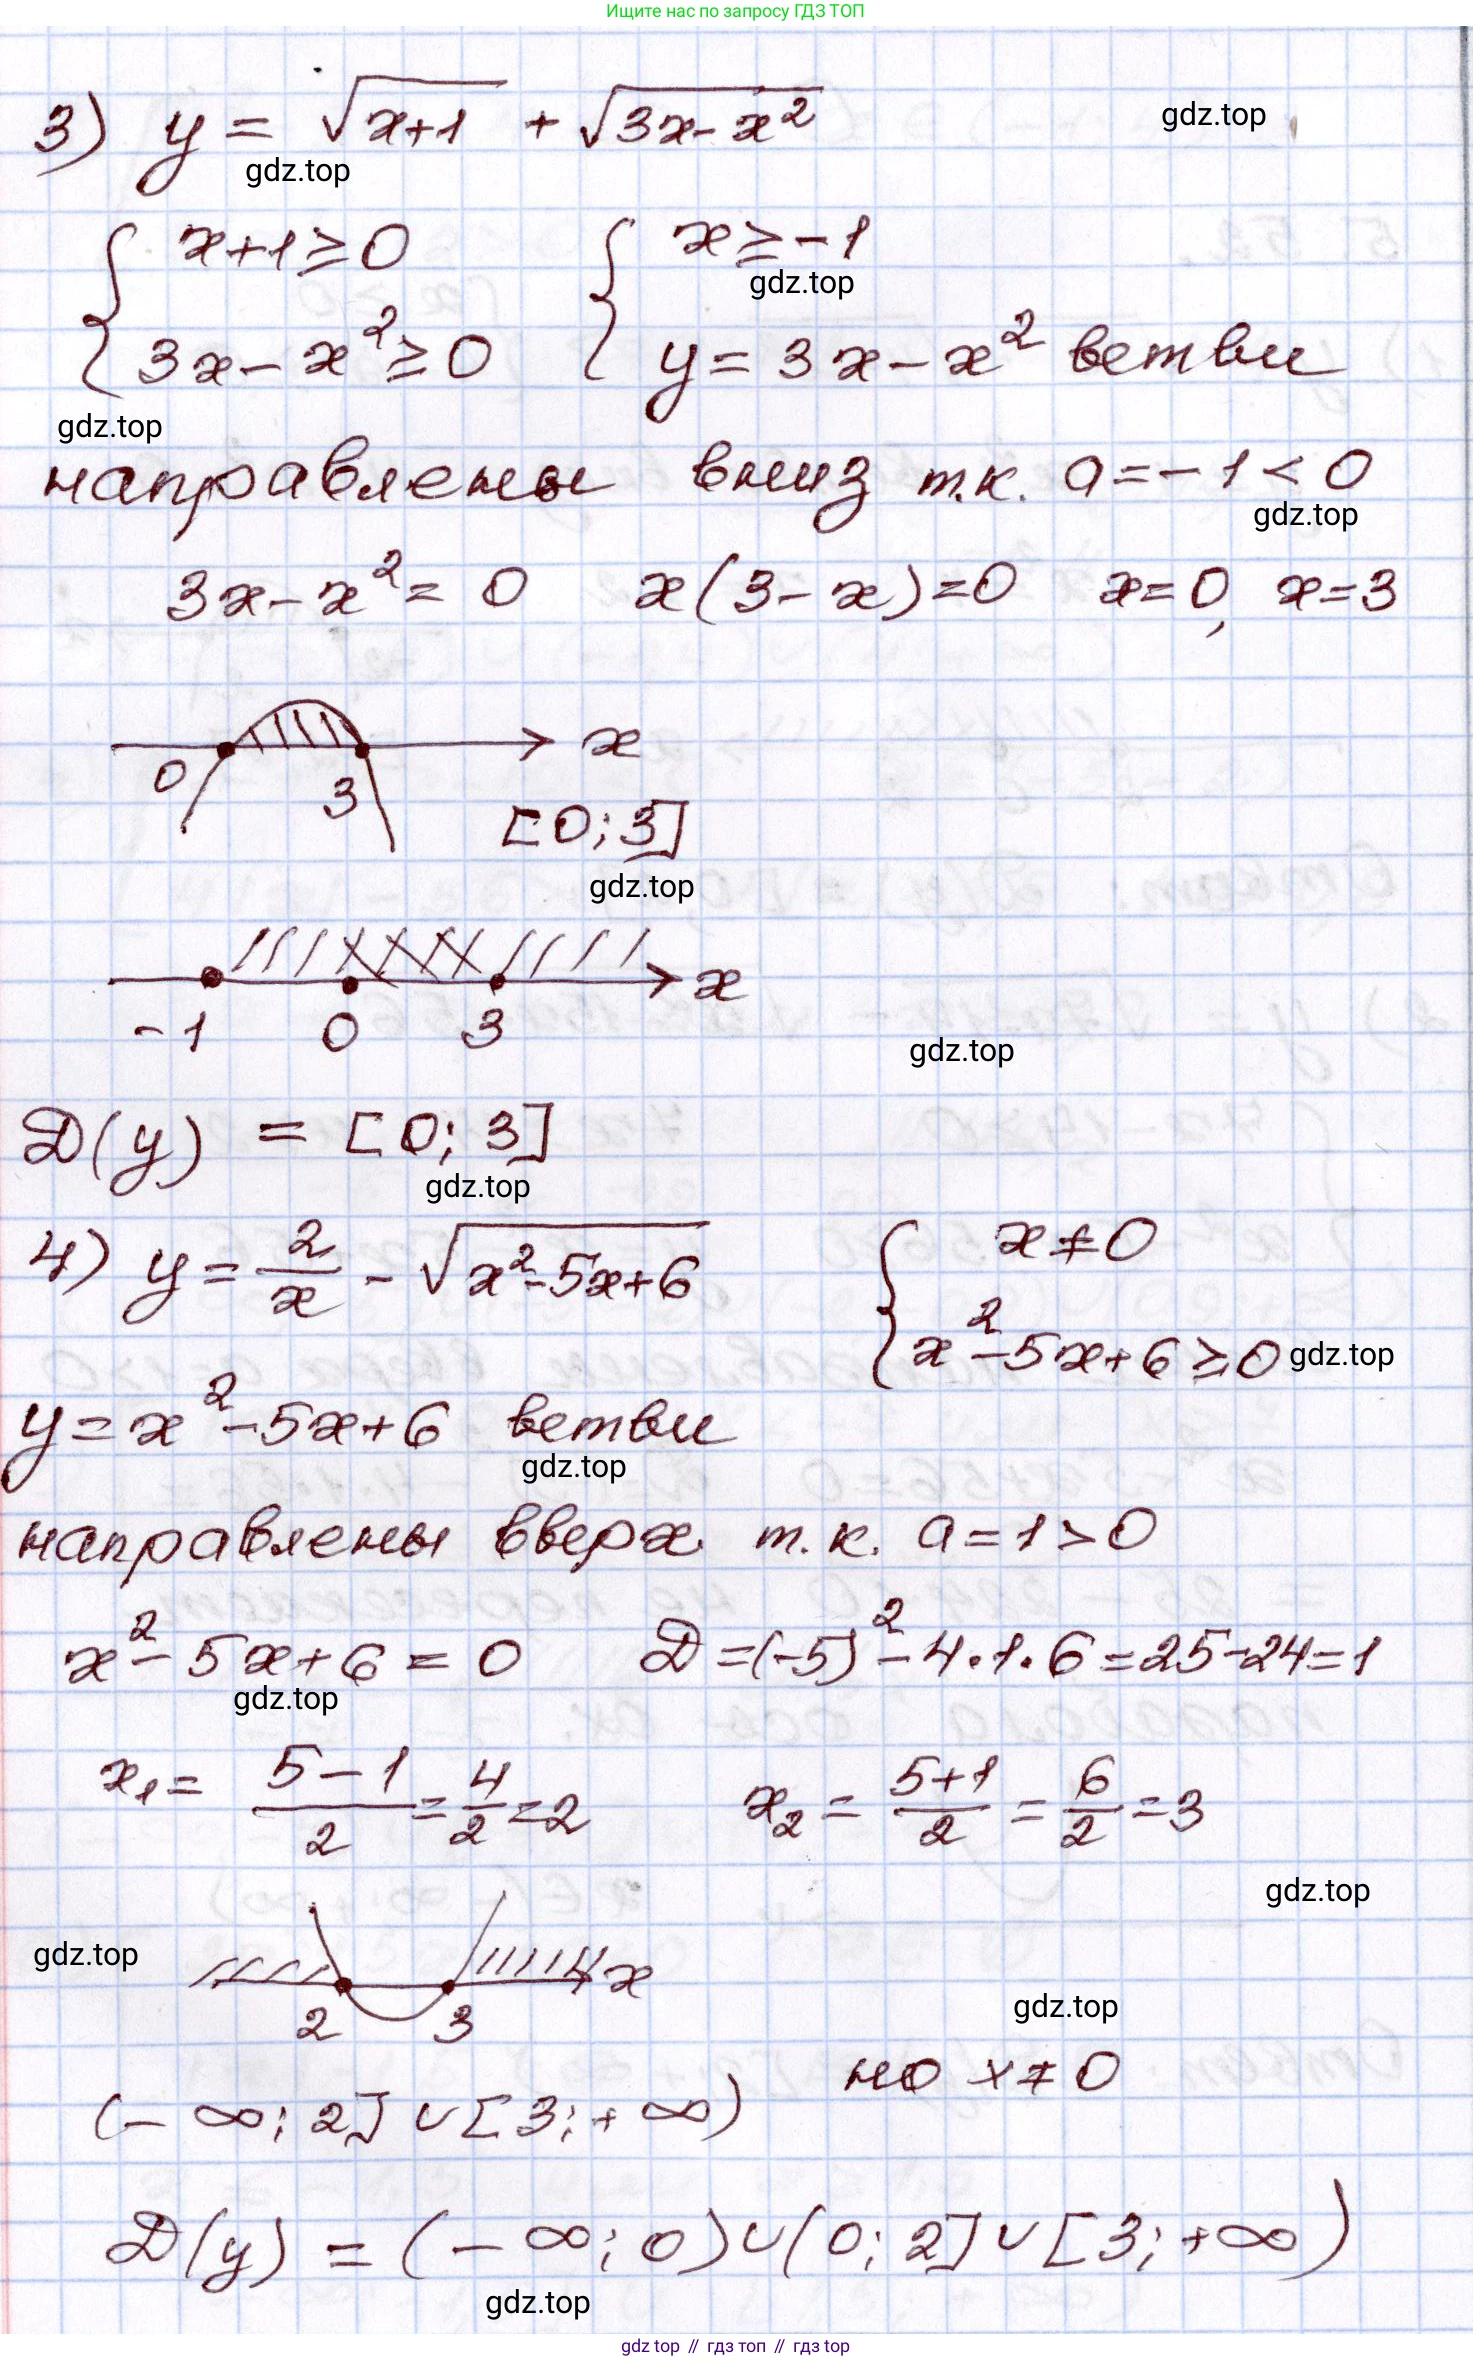 Ищите нас по запросу ГДЗ ТОП
3) y = √(x+1) + √(3x-x²)
gdz.top
gdz.top
{ x+1≥0 { x≥-1
gdz.top
3x-x²≥0 y=3x-x² ветви
gdz.top
направлены вниз т.к. a=-1<0
gdz.top
3x-x²=0 x(3-x)=0 x=0, x=3
x
0 3
[0;3]
gdz.top
x
-1 0 3
gdz.top
D(y) = [0;3]
gdz.top
4) y = 2/x - √(x²-5x+6) { x≠0
x²-5x+6≥0
gdz.top
y=x²-5x+6 ветви
gdz.top
направлены вверх т.к. a=1>0
x²-5x+6=0 D=(-5)²-4·1·6=25-24=1
gdz.top
x₁ = (5-1)/2 = 4/2 = 2 x₂ = (5+1)/2 = 6/2 = 3
gdz.top
gdz.top
x
2 3
gdz.top
но x≠0
(-∞;2]∪[3;+∞)
D(y) = (-∞;0)∪(0;2]∪[3;+∞)
gdz.top
gdz top // гдз топ // гдз top